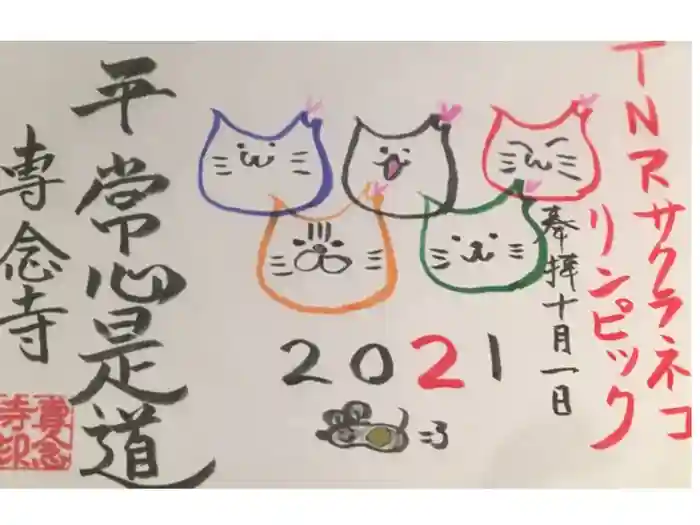 TNRサクラネコ
リンピック
奉拝十月一日
2021
平常心是道
専念寺
専念
寺印